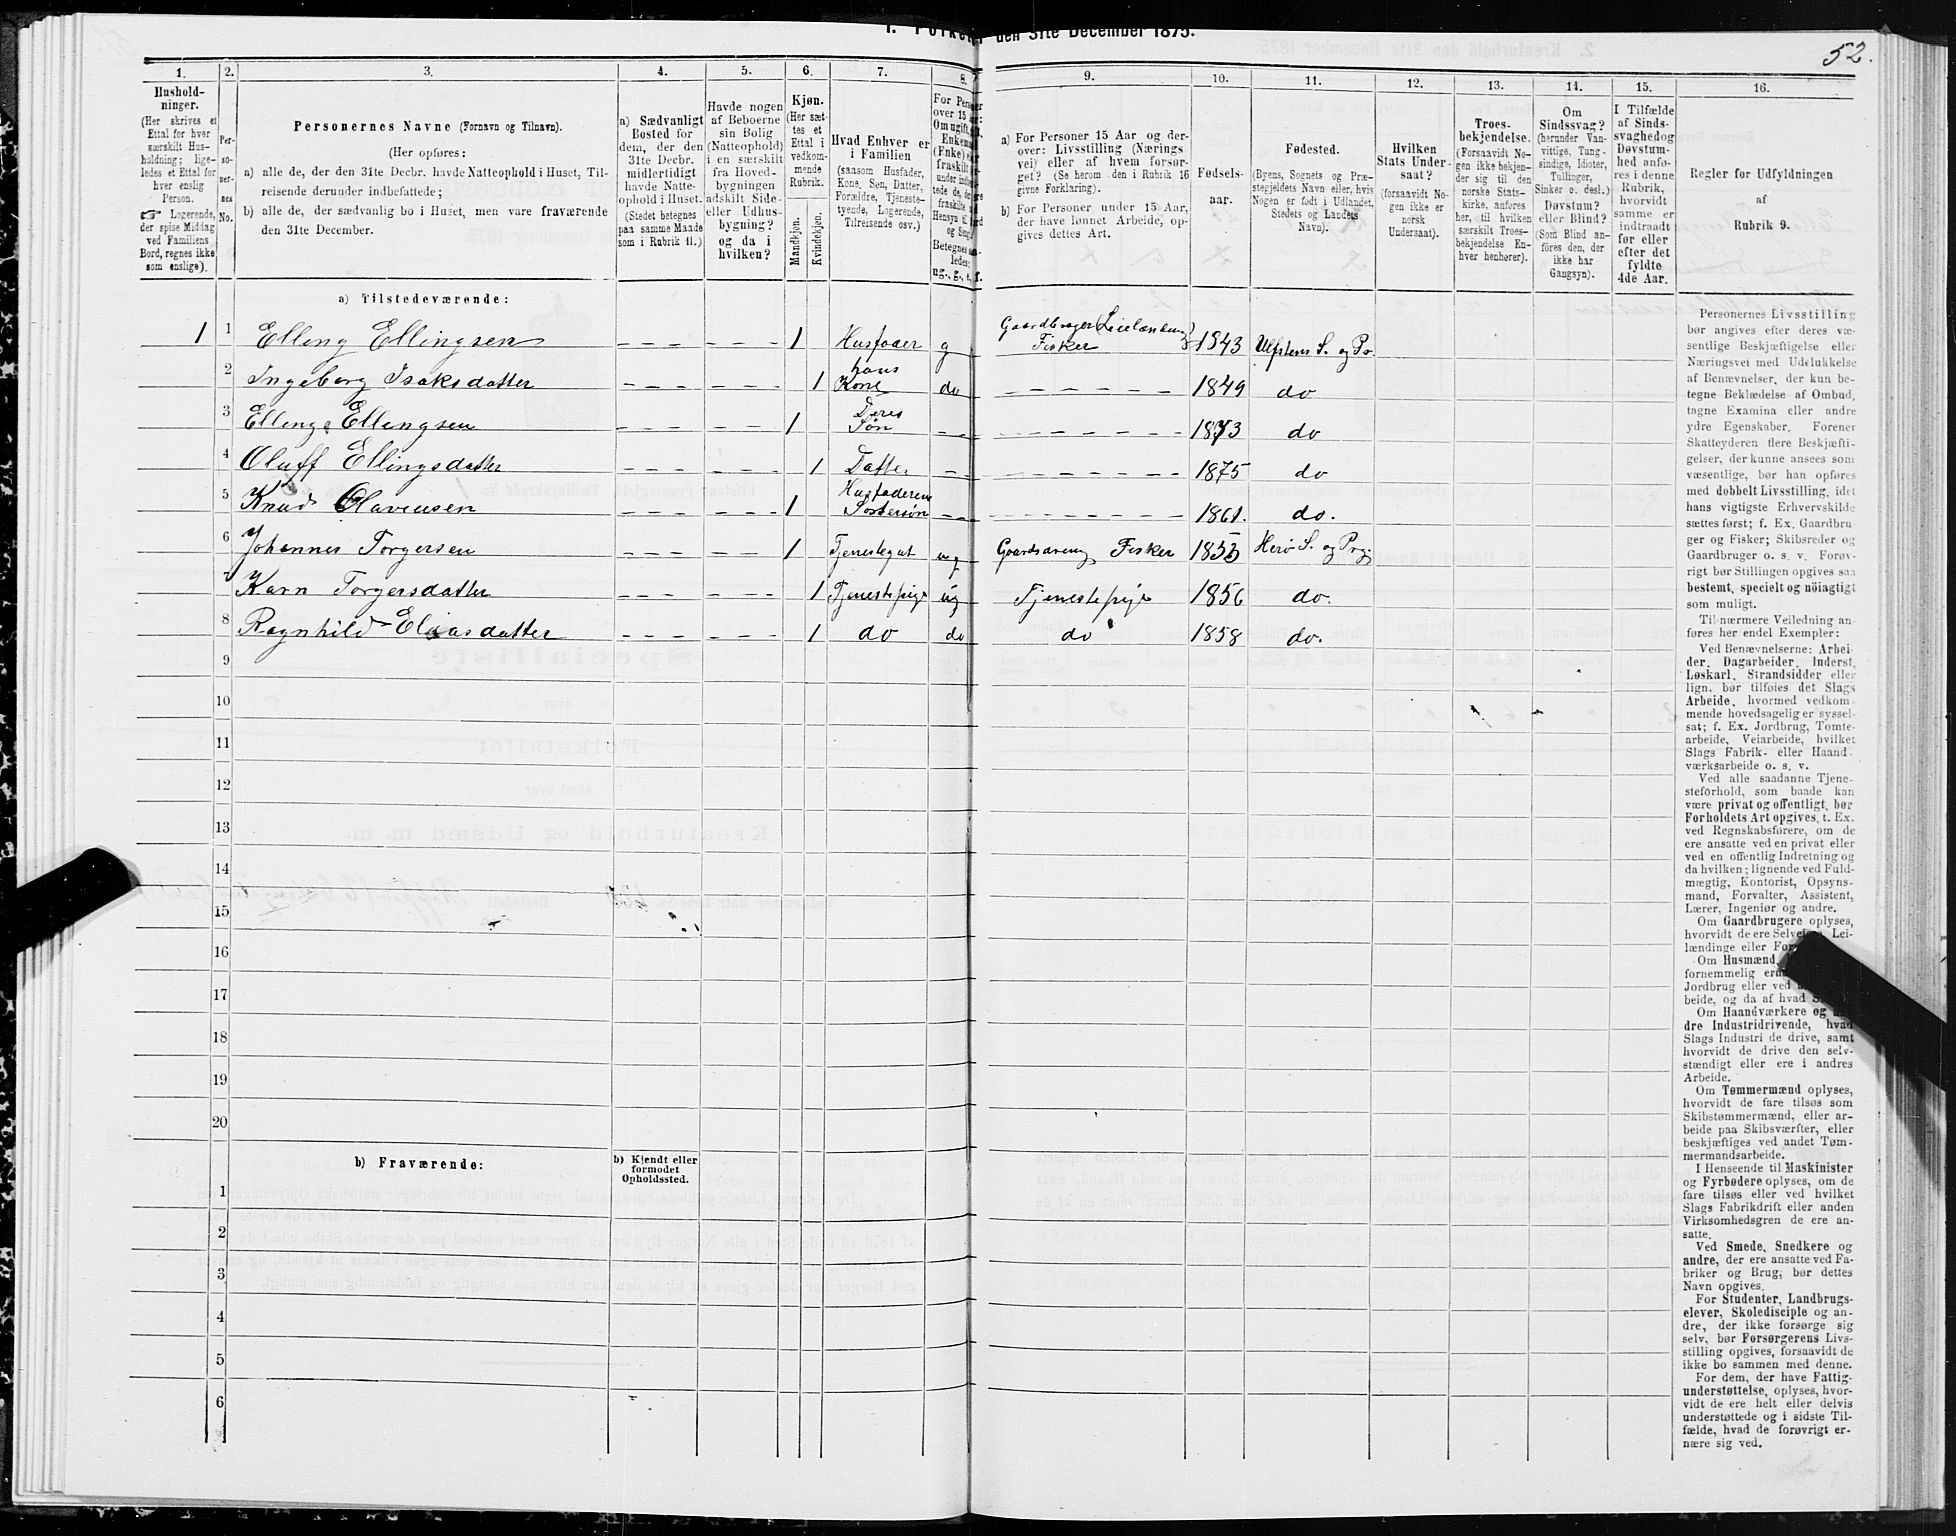 1. Folketal den 31te December 1875.
52.
1. 2. 3. 4. 5. 6. 7. 8. 9. 10. 11. 12. 13. 14. 15. 16.
Husholdninger.
(Her skrives et
Ettal for hver
særskilt Hus-
holdning; lige-
ledes et Ettal for
hver enslig
Person.
☞ Logerende,
der spise Middag
ved Familiens
Bord, regnes ikke
som enslige).
Per-
so-
ner-
nes
No.
Personernes Navne (Fornavn og Tilnavn).
(Her opføres:
a) alle de, der den 31te Decbr. havde Natteophold i Huset, Til-
reisende derunder indbefattede;
b) alle de, der sædvanlig bo i Huset, men vare fraværende
den 31te December.
a) Sædvanligt
Bosted for
dem, der den
31te Decbr.
midlertidigt
havde Natte-
ophold i Huset.
(Stedet betegnes
paa samme Maade
som i Rubrik 11.)
Havde nogen
af Beboerne
sin Bolig
(Natteophold)
i en særskilt
fra Hoved-
bygningen
adskilt Side-
eller Udhus-
bygning?
og da i
hvilken?
Kjøn.
(Her sæt-
tes et
Ettal i
vedkom-
mende
Rubrik.
Mandkjøn.
Kvindekjøn.
Hvad Enhver er
i Familien
(saasom Husfader,
Kone, Søn, Datter,
Forældre, Tjeneste-
tyende, Logerende,
Tilreisende osv.)
a) For Personer 15 Aar og der-
over: Livsstilling (Nærings
vei) eller af hvem forsør-
get? (Se herom den i Rubrik 16
givne Forklaring).
b) For Personer under 15 Aar,
der have lønnet Arbeide, op-
gives dettes Art.
Fødsels-
aar.
Fødested.
(Byens, Sognets og Præ-
stegjeldets Navn eller, hvis
Nogen er født i Udlandet,
Stedets og Landets
Navn).
Hvilken
Stats Under-
saat?
(forsaavidt No-
gen ikke er
norsk
Undersaat).
Troes-
bekjendelse.
(Forsaavidt No-
gen ikke bekjen-
der sig til den
norske Stats-
kirke, anføres
her, til hvilken
særskilt Troes-
bekjendelse En-
hver henhører).
Om
Sindssvag?
(herunder Van-
vittige, Tung-
sindige, Idioter,
Tullinger,
Sinker o. desl.)
Døvstum?
eller Blind?
(Som Blind an-
føres den, der
ikke har
Gangsyn).
I Tilfælde
af Sinds-
svaghed og
Døvstum-
hed anfø-
res i denne
Rubrik,
hvorvidt
samme er
indtraadt
før eller
efter det
fyldte
4de Aar.
Regler for Udfyldningen
af
Rubrik 9.
a) Tilstedeværende:
1 1 Elling Ellingsen 1 Husfader g Gaardbruger (Leilænding) Fisker 1843 Ulfstens S. og Pr.
2 Ingeborg Isaksdatter 1 hans Kone do 1849 do
3 Elling Ellingsen 1 Deres Søn 1873 do
4 Oluff Ellingsdatter 1 Datter 1875 do
5 Knud Olavensen 1 Husfaderens Søstersøn 1861. do.
6 Johannes Torgersen 1 Tjenestegut ug. Fisker Herø S. og Prg.
7 Karn Torgersdatter 1 Tjenestepige ug Tjenestepige 1856 do.
8 Ragnhild Eliasdatter 1 do do do 1858 do.
9
10
11
12
13
14
15
16
17
18
19
20
b) Fraværende:
b) Kjendt eller
formodet
Opholdssted.
1
2
3
4
5
6
Personernes Livsstilling
bør angives efter deres væ-
sentlige Beskjæftigelse eller
Næringsvei med Udelukkelse
af Benævnelser, der kun be-
tegne Beklædelse af Ombud,
tagne Examina eller andre
ydre Egenskaber. Forener
Skatteyderen flere Beskjæfti-
gelser, der kunne ansees som
væsentlige, bør han opføres
med dobbelt Livsstilling, idet
hans vigtigste Erhvervskilde
sættes først; f. Ex. Gaardbru-
ger og Fisker; Skibsreder og
Gaardbruger o. s. v. Forøv-
rigt bør Stillingen opgives saa
bestemt, specielt og nöiagtigt
som muligt.
Til nærmere Veiledning an-
føres her endel Exempler:
Ved Benævnelserne: Arbei-
der, Dagarbeider, Inderst,
Løskarl, Strandsidder eller
lign. bør tilføies det Slags
Arbeide, hvormed vedkom-
mende hovedsagelig er syssel-
sat; f. Ex. Jordbrug, Tomte-
arbeide, Veiarbeide, hvilket
Slags Fabrik- eller Haand-
værksarbeide o. s. v.
Ved alle saadanne Tjene-
steforhold, som baade kan
være privat og offentligt, bør
Forholdets Art opgives, t. Ex.
ved Regnskabsførere, om de
ere ansatte ved en privat eller
ved en offentlig Indretning og
da hvilken; lignende ved Fuld-
mægtig, Kontorist, Opsyns-
mand, Forvalter, Assistent,
Lærer, Ingeniør og andre.
Om Gaardbrugere oplyses,
hvorvidt de ere Selveiere, Lei-
lændinge eller
Om Husmænd,
fornemmelig
Jordbrug eller ved
beide, og da af hvad
Om Haandværkere og
dre Industridrivende, hvad
Slags Industri de drive, samt
hvorvidt de drive den selv-
stændigt eller ere i andres
Arbeide.
Om Tømmermænd oplyses,
hvorvidt de fare tilsøs som
Skibstømmermænd, eller ar-
beide paa Skibsværfter, eller
beskjæftiges ved andet Tøm-
mermandsarbeide.
I Henseende til Maskinister
og Fyrbødere oplyses, om de
fare tilsøs eller ved hvilket
Slags Fabrikdrift eller anden
Virksomhedsgren de ere an-
satte.
Ved Smede, Snedkere og
andre, der ere ansatte ved Fa-
briker og Brug, bør dettes
Navn opgives.
For Studenter, Landbrugs-
elever, Skoledisciple og an-
dre, der ikke forsørge sig
selv, bør Forsørgerens Livs-
stilling opgives, forsaavidt de
ikke bo sammen med denne.
For dem, der have Fattig-
understøttelse, oplyses, hvor-
vidt de ere helt eller delvis
understøttede og i sidste Til-
fælde, hvad de forøvrigt er-
nære sig ved.